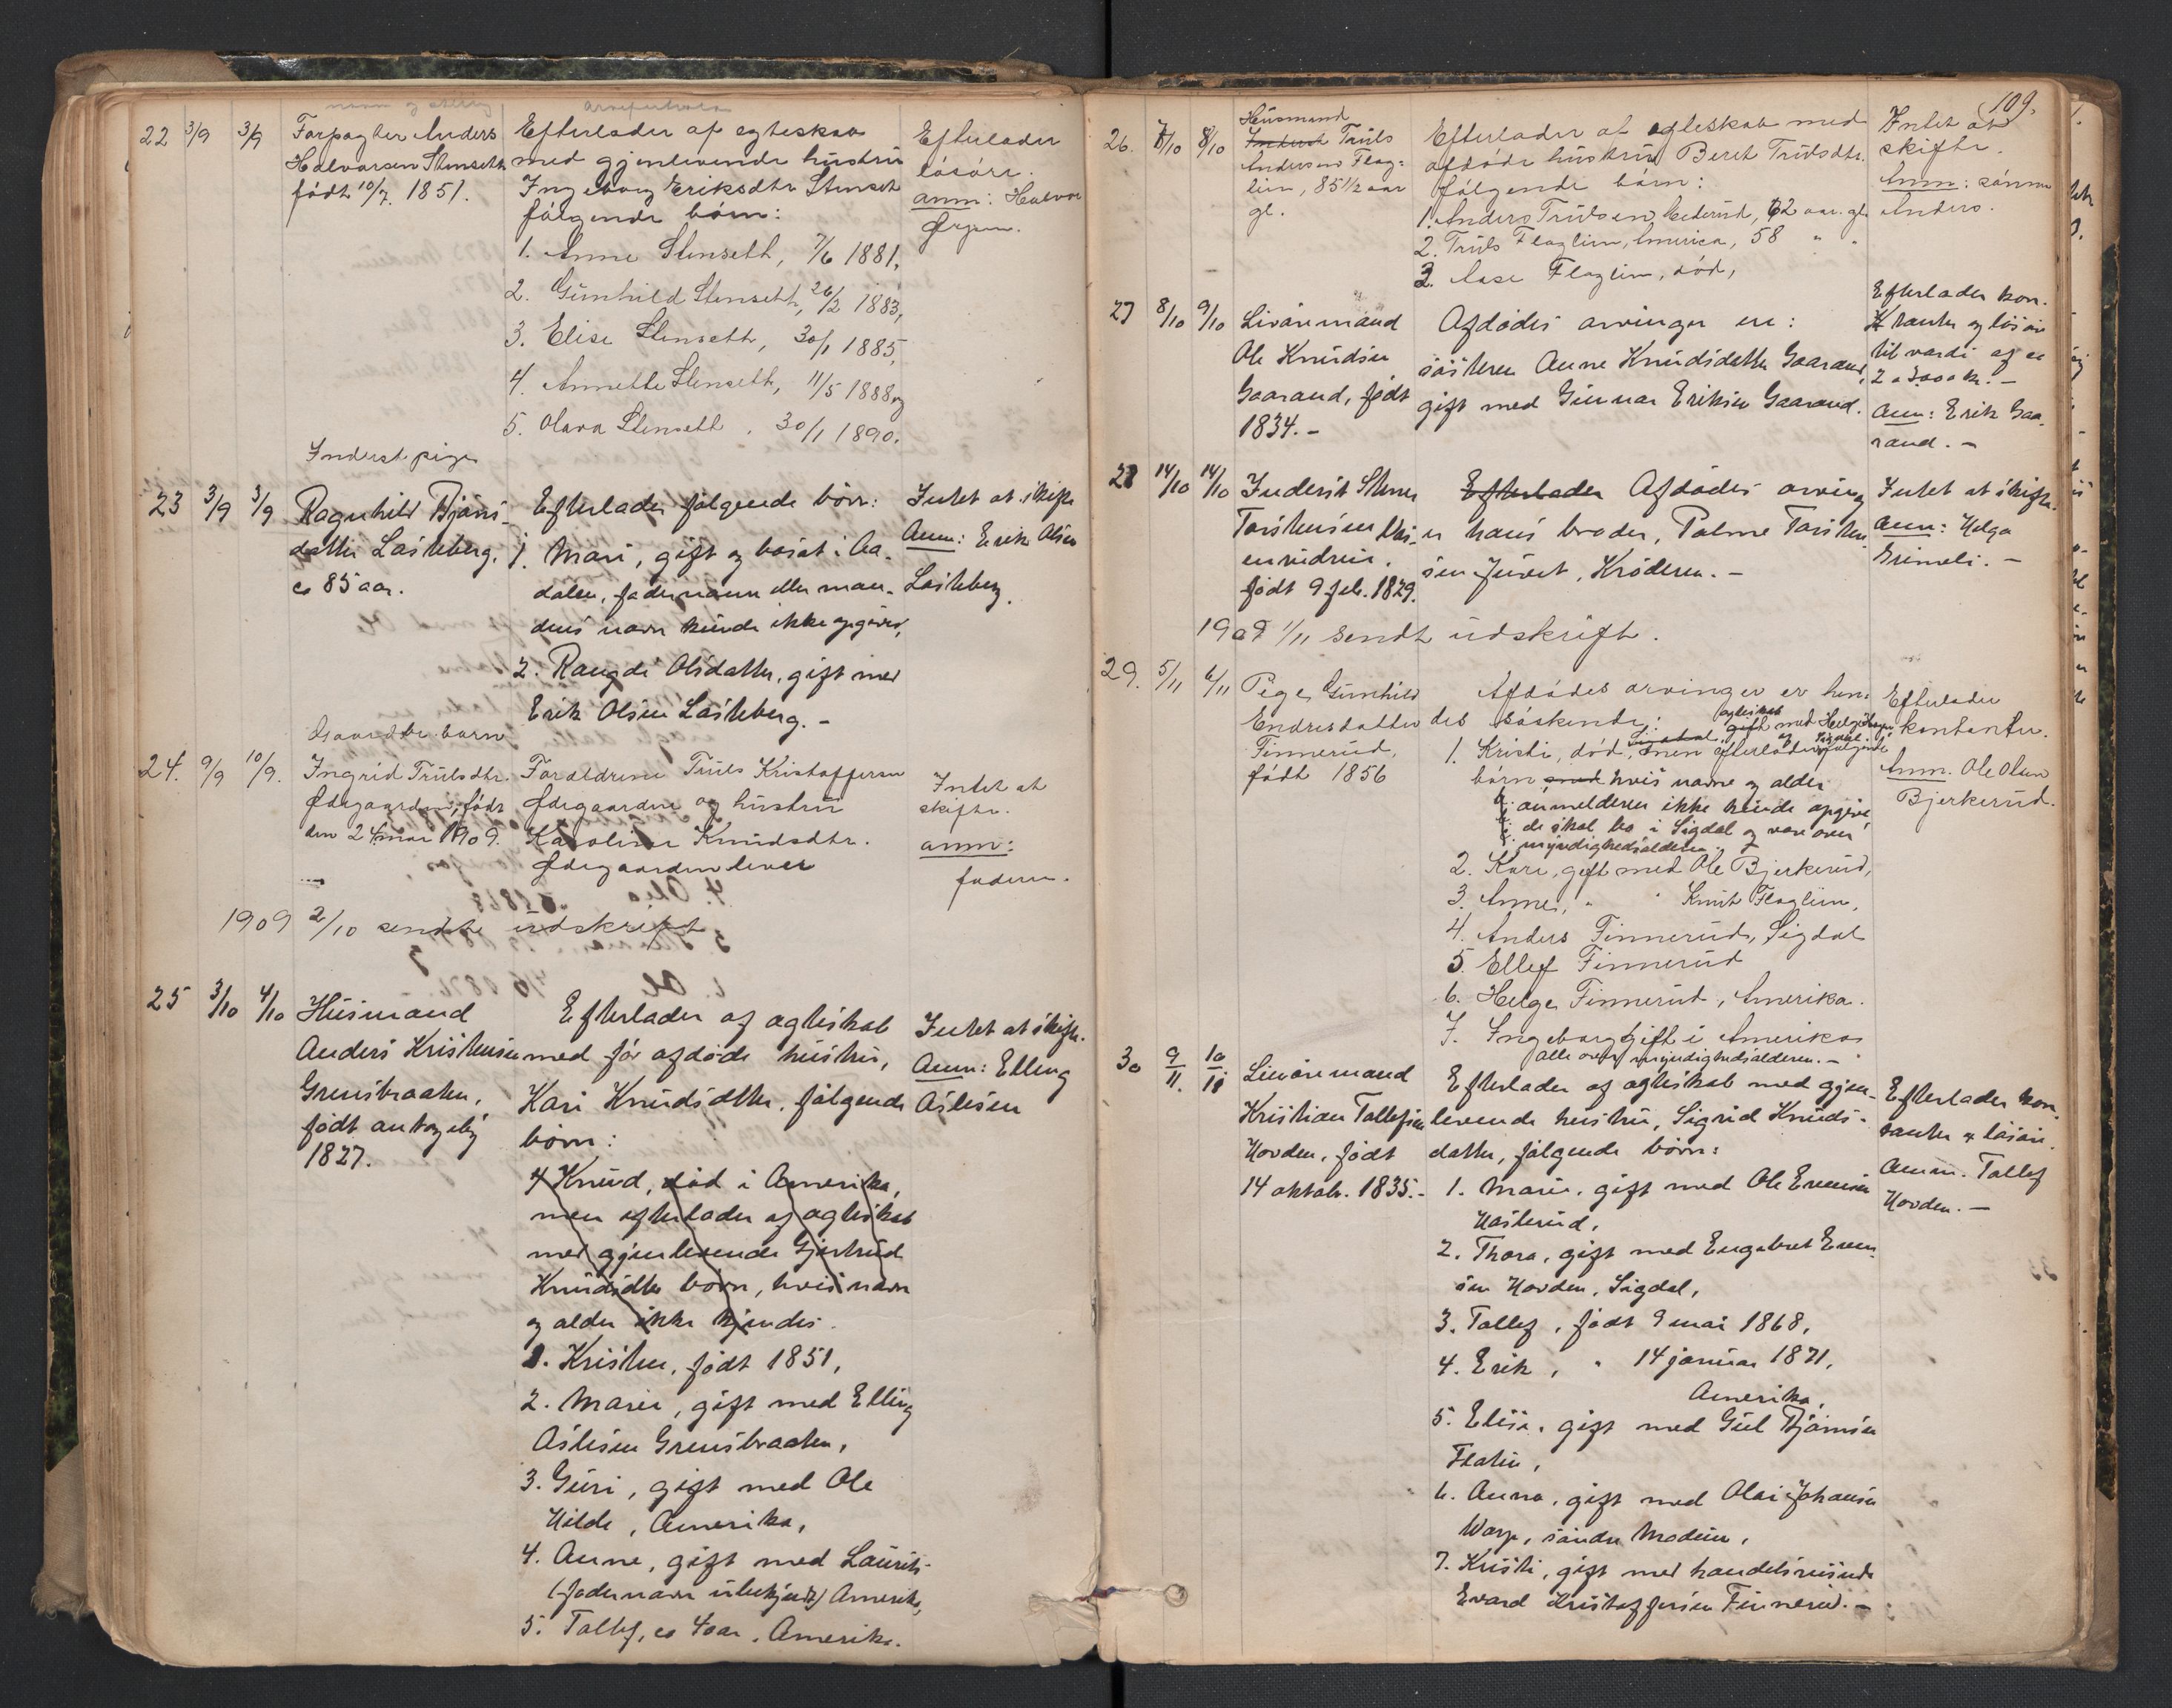 22 3/9 3/9 Forpagter Anders
Halvorsen Stenseth
født 10/7 1851.
Efterlader af egteskab
med gjenlevende hustru
Ingeborg Eriksdtr Stenset
følgende børn:
1. Anne Stenseth, 7/6 1881,
2. Gunhild Stenseth, 26/2 1883,
3. Elise Stenseth, 30/1 1885,
4. Annette Stenseth, 11/5 1888 og
5. Olava Stenseth, 30/1 1890.
Efterlader
løsøre.
anm: Halvor
Ørgen.
Inderst pige
23 3/9 3/9 Ragnhild Bjørns-
datter Lasteberg,
ca 85 aar.
Efterlader følgende børn:
1. Mari, gift og bosat i Aa-
dalen, fadernavn eller man-
dens navn kunde ikke opgives,
2. Rangdi Olsdatter, gift med
Erik Olsen Lasteberg. -
Intet at skifte
Anm: Erik Olsen
Lasteberg.
Gaardbr. barn
24. 9/9 10/9. Ingrid Trulsdtr.
Ødegaarden, født
den 24 mar 1909.
Forældrene Truls Kristoffersen
Ødegaarden og hustru
Karoline Knudsdtr.
Ødegaarden lever
Intet at
skifte.
anm:
faderen.
1909 2/10 sendte udskrift
25 3/10 4/10 Husmand
Anders Kristensen
Grensbraaten,
født antagelig
1827.
Efterlader af ægteskab
med før afdøde hustru,
Kari Knudsdtter, følgende
børn:
1 Knud, død i Amerika,
men efterlader af ægteskab
med gjenlevende Gjertrud
Knudsdtter børn, hvis navn
og alder ikke kjendes.
1. Kristen, født 1851,
2. Maren, gift med Elling
Aslesen Grensbraaten,
3. Guri, gift med Ole
Hilde, Amerika,
4. Anne, gift med Laurits
(fadernavn ubekjendt) Amerika,
5. Tollef, ca 40 aar, Amerika.
Intet at skifte.
Anm: Elling
Aslesen
109.
26. 7/10 8/10 Husmand
Inderst Truls
Andersen Flag-
lien, 85 1/2 aar
gl.
Efterlader af egteskab med
afdøde hustru Beret Trulsdtr.
følgende børn:
1. Anders Trulsen Sæterud, 62 aar gl.
2. Truls Flaglien, Amerika, 58 " "
3. Aase Flaglien, død,
Intet at
skifte.
Anm: sønnen
Anders.
27 8/10 9/10 Livøremand
Ole Knudsen
Gaarand, født
1834. -
Afdødes arvinger er:
søsteren Anne Knudsdatter Gaarand,
gift med Gunnar Eriksen Gaarand.
Efterlader kon-
tanter og løsøre
til værdi af ca
2 a 3000 kr. -
Anm: Erik Gaa-
rand. -
28 14/10 14/10 Inderst Stener
Torstensen
født 9 feb. 1829.
Efterlader Afdødes arving
er hans broder, Palme Torsten-
sen Juvet, Krøderen. -
Intet at skifte.
Anm: Helge
Grimeli. -
1909 1/11 sendt udskrift.
29. 5/11 6/11 Pige Gunhild
Endresdatter
Finnerud,
født 1856
Afdødes arvinger er hen-
des søskende:
1. Kristi, død, men efterlader følgende
børn med hvis navne og alder
anmelderen ikke kunde opgive,
de skal bo i Sigdal og være over
myndighedsalderen.
2. Kari, gift med Ole Bjerkerud,
3. Anne, " " Knut Flaglien,
4. Anders Finnerud, Sigdal
5. Ellef Finnerud
6. Helge Finnerud, Amerika.
7. Ingeborg gift i Amerika
alle over myndighedsalderen. -
Efterlader
kontanter.
Anm. Ole Olsen
Bjerkerud.
30 9/11. 10/11 Livøremand
Kristian Tollefsen
Hovden, født
14 oktob. 1835. -
Efterlader af ægteskab med gjen-
levende hustru, Sigrid Knuds-
datter, følgende børn:
1. Maren, gift med Ole Evensen
Hasterud,
2. Thora, gift med Engebret Even-
sen Hovden, Sigdal,
3. Tollef, født 9 mai 1868,
4. Erik, " 14 januar 1871,
Amerika,
5. Elise, gift med Gul Bjørnsen
Flaten,
6. Anna, gift med Olai Johansen
Warp, søndre Modum,
7. Kristi, gift med handelsreisende
Evard Kristoffersen Finnerud. -
Efterlader kon-
tanter & løsøre.
Anm. Tollef
Hovden. -